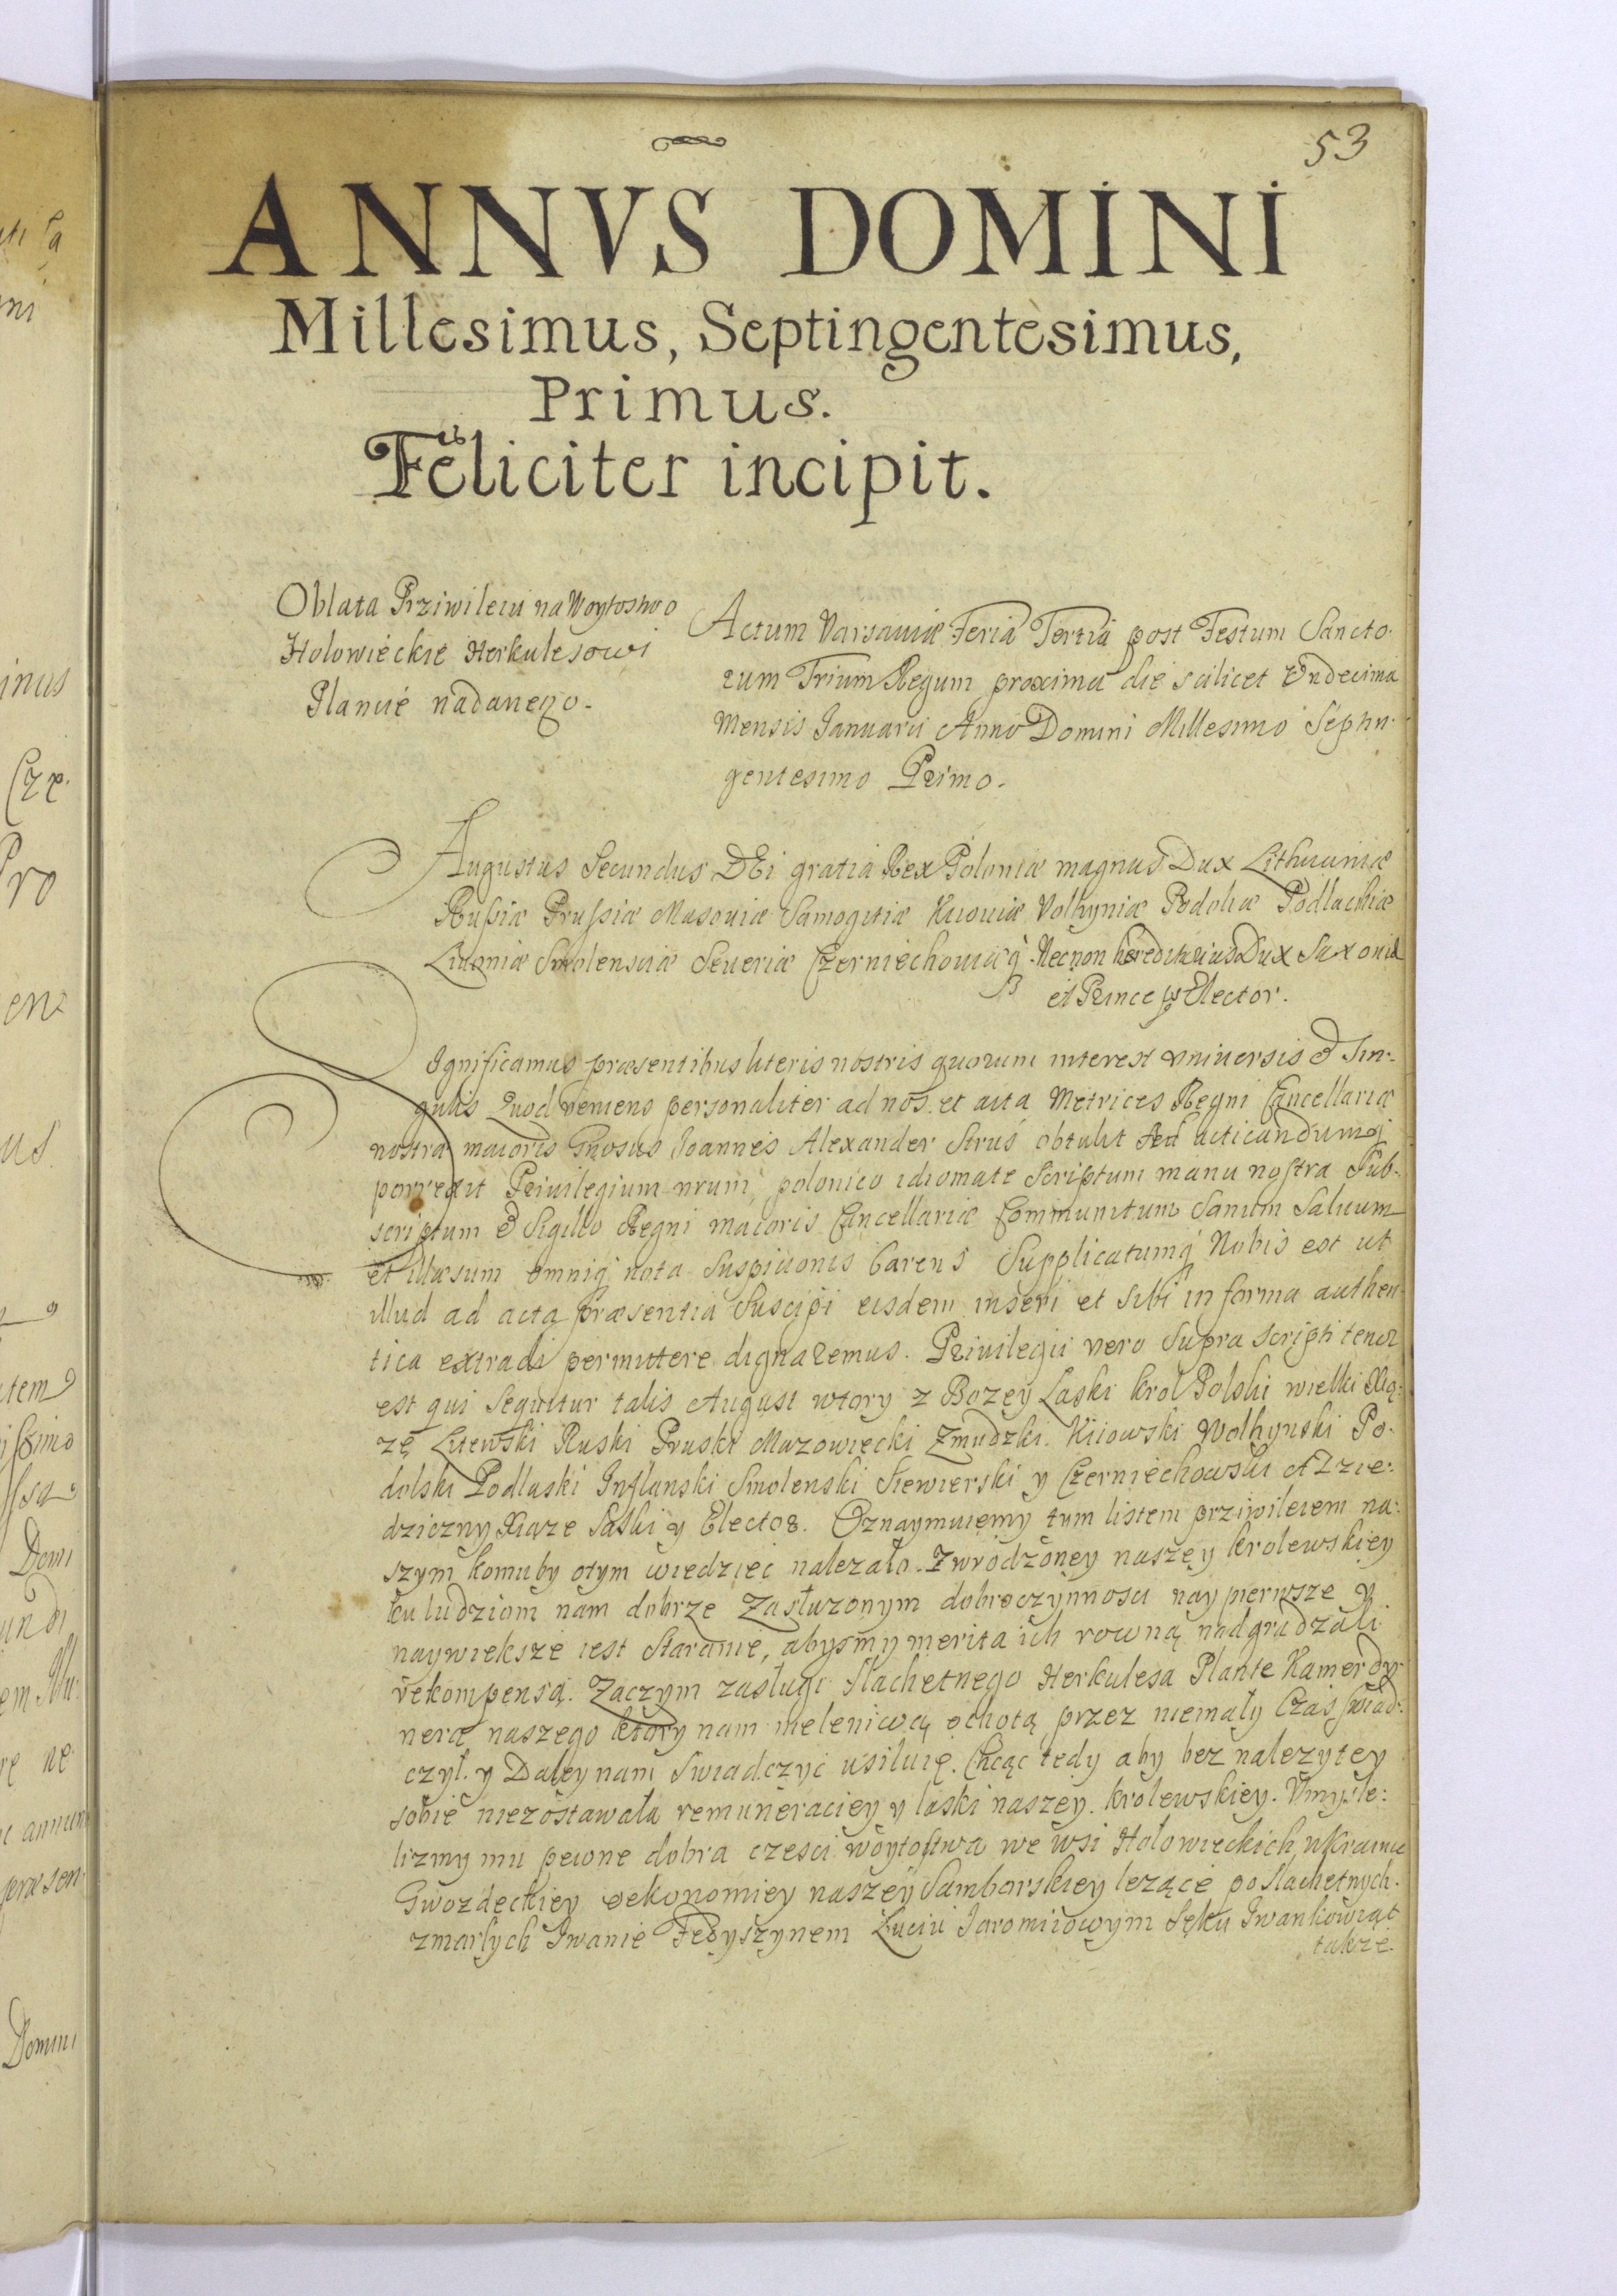 53
ANNVS DOMINI
Millesimus, Septingentesimus,
Primus.
Feliciter incipit.
Oblata Prziwileiu na Woytostwo
Holowieckie Herkulesowi
Plancie nadanego.
Actum Varsaviæ Feria Tertia post Festum Sancto-
rum Trium Regum proxima die scilicet Undecima
Mensis Januarii Anno Domini Millesimo Septin-
gentesimo Primo.
Augustus Secundus DEi gratia Rex Poloniæ magnus Dux Lithuaniæ
Russiæ Prussiæ Masoviæ Samogitiæ Kiioviæ Volhyniæ Podoliæ Podlachiæ
Livoniæ Smolensciæ Severiæ Czerniechoviæq. Necnon hereditarius Dux Saxoniæ
et Princeps Elector.
Significamus præsentibus literis nostris quorum interest universis & Sin-
gulis Quod veniens personaliter ad nos et acta Metrices Regni Cancellariæ
nostræ maioris Gnosus Joannes Alexander Struś obtulit Ad acticandumq
porrexit Privilegium nrum polonico idiomate Scriptum manu nostra Sub-
scriptum & Sigillo Regni maioris Cancellariæ Communitum Sanum Saluum
et illæsum omniq nota Suspicionis Carens Supplicatumq Nobis est ut
illud ad acta præsentia Suscipi eisdem inseri et Sibi in forma authen
tica extradi permittere dignaremus. Privilegii vero Supra scripti tenor
est qui Sequitur talis August wtory z Bozey Laski krol Polski wielki Xią:
zę Litewski Ruski Pruski Mazowiecki Zmudzki. Kiiowski Wolhynski Po-
dolski Podlaski Inflanski Smolenski Siewierski y Czerniechowski A Dzie:
dziczny Xiąze Saski y Elector. Oznaymuiemy tym listem prziwileiem na:
szym komuby otym wiedziec nalezało. Zwrodzoney naszey krolewskiey
ku ludziom nam dobrze Zasłuzonym dobroczynnosci naypierwsze y
naywieksze iest Staranie, abysmy merita ich rowną nadgradzali
rekompensą. Zaczym zasługi Slachetnego Herkulesa Plante Kamerdy
nera naszego ktory nam nieleniwą ochotą przez niemały Czas swiad:
czył. y Daley nam Swiadczyc usiluię. Chcąc tedy aby bez nalezytey
sobie niezostawała remuneraciey y laski naszey. krolewskiey. Umysle:
lizmy mu pewne dobra czesci woytostwa we wsi Hołowieckich wKrainie
Gwozdeckiey oekonomiey naszey Samborskiey lezące po Slachetnych.
zmarłych Iwanie Fedyszynem Luciu Jaromirowym Sęku Iwankowiat
takze.